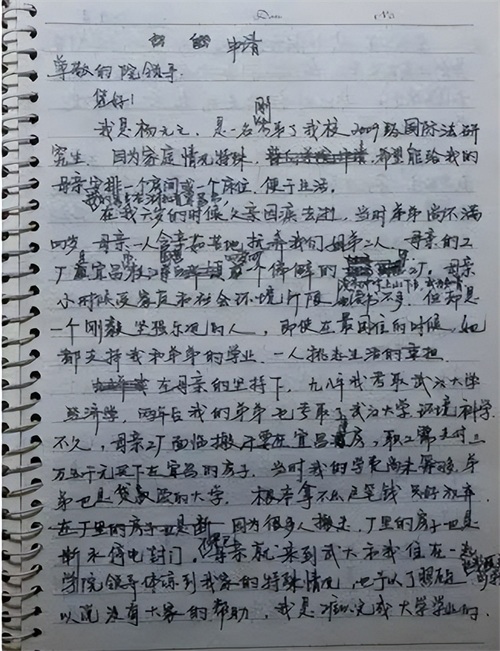 申请
尊敬的院领导:
您好!
我是杨元元,是一名刚考了我校2009级国际法研
究生,因为家庭情况特殊,希望能给我的
母亲安排一个房间或一个床位,便于生活。
在我六岁的时候父亲因病去世,当时弟弟尚不满
四岁,母亲一人含辛茹苦地抚养我们姐弟二人,母亲的工
厂是宜昌 一个偏僻的 工厂。母亲
小时候受家庭和社会环境所限 读书不多,但却是
一个刚毅坚强乐观的人,即使在最困难的时候,她
都支持我和弟弟的学业,一人挑起生活的重担。
在母亲的坚持下,九八年我考取武汉大学
经济学,两年后我的弟弟也考取了武汉大学环境科学,
不久,母亲工厂面临搬迁要在宜昌 房,职工需支付三
万五千元买下在宜昌的房子,当时我的学费尚未筹够,弟
弟也是贷款读的大学,根本拿不出这笔钱,只好放弃,
因为很多人搬走,厂里的房子也是
断水停电封门,母亲就来到武大和我住在一起
学院领导体谅到我家的特殊情况,也予以了照顾,
以说没有大家的帮助,我是难以完成大学学业的,